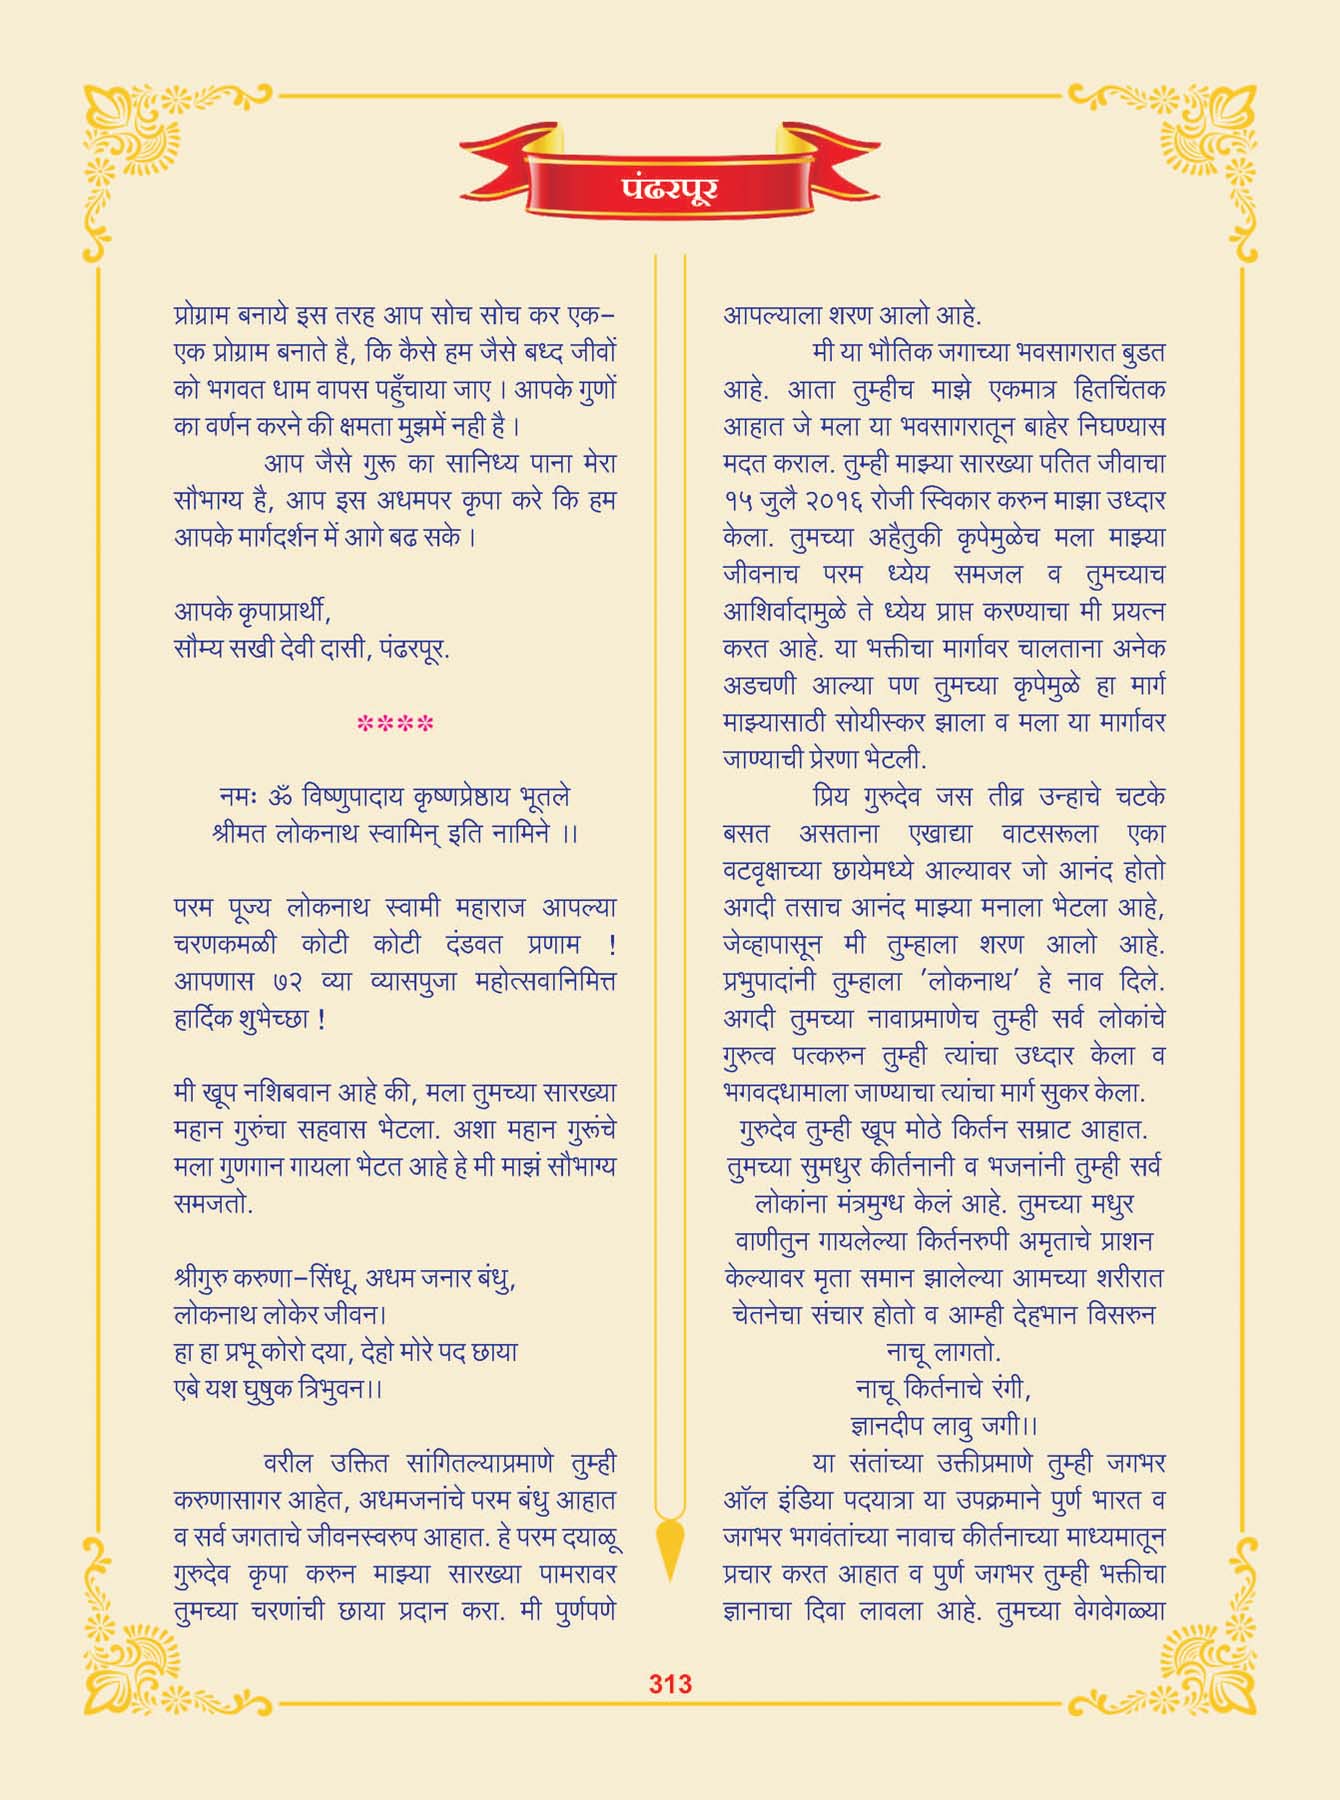 पंढरपूर
प्रोग्राम बनाये इस तरह आप सोच सोच कर एक-
एक प्रोग्राम बनाते है, कि कैसे हम जैसे बध्द जीवों
को भगवत धाम वापस पहुँचाया जाए । आपके गुणों
का वर्णन करने की क्षमता मुझमें नही है ।
आप जैसे गुरू का सानिध्य पाना मेरा
सौभाग्य है, आप इस अधमपर कृपा करे कि हम
आपके मार्गदर्शन में आगे बढ सके ।
आपके कृपाप्रार्थी,
सौम्य सखी देवी दासी, पंढरपूर.
****
नमः ॐ विष्णुपादाय कृष्णप्रेष्ठाय भूतले
श्रीमत लोकनाथ स्वामिन् इति नामिने ।।
परम पूज्य लोकनाथ स्वामी महाराज आपल्या
चरणकमळी कोटी कोटी दंडवत प्रणाम !
आपणास ७२ व्या व्यासपुजा महोत्सवानिमित्त
हार्दिक शुभेच्छा !
मी खूप नशिबवान आहे की, मला तुमच्या सारख्या
महान गुरुंचा सहवास भेटला. अशा महान गुरूंचे
मला गुणगान गायला भेटत आहे हे मी माझं सौभाग्य
समजतो.
श्रीगुरु करुणा-सिंधू, अधम जनार बंधु,
लोकनाथ लोकेर जीवन।
हा हा प्रभू कोरो दया, देहो मोरे पद छाया
एबे यश घुषुक त्रिभुवन।।
वरील उक्तित सांगितल्याप्रमाणे तुम्ही
करुणासागर आहेत, अधमजनांचे परम बंधु आहात
व सर्व जगताचे जीवनस्वरुप आहात. हे परम दयाळू
गुरुदेव कृपा करुन माझ्या सारख्या पामरावर
तुमच्या चरणांची छाया प्रदान करा. मी पुर्णपणे
आपल्याला शरण आलो आहे.
मी या भौतिक जगाच्या भवसागरात बुडत
आहे. आता तुम्हीच माझे एकमात्र हितचिंतक
आहात जे मला या भवसागरातून बाहेर निघण्यास
मदत कराल. तुम्ही माझ्या सारख्या पतित जीवाचा
१५ जुलै २०१६ रोजी स्विकार करुन माझा उध्दार
केला. तुमच्या अहैतुकी कृपेमुळेच मला माझ्या
जीवनाच परम ध्येय समजल व तुमच्याच
आशिर्वादामुळे ते ध्येय प्राप्त करण्याचा मी प्रयत्न
करत आहे. या भक्तीचा मार्गावर चालताना अनेक
अडचणी आल्या पण तुमच्या कृपेमुळे हा मार्ग
माझ्यासाठी सोयीस्कर झाला व मला या मार्गावर
जाण्याची प्रेरणा भेटली.
प्रिय गुरुदेव जस तीव्र उन्हाचे चटके
बसत असताना एखाद्या वाटसरूला एका
वटवृक्षाच्या छायेमध्ये आल्यावर जो आनंद होतो
अगदी तसाच आनंद माझ्या मनाला भेटला आहे,
जेव्हापासून मी तुम्हाला शरण आलो आहे.
प्रभुपादांनी तुम्हाला 'लोकनाथ' हे नाव दिले.
अगदी तुमच्या नावाप्रमाणेच तुम्ही सर्व लोकांचे
गुरुत्व पत्करुन तुम्ही त्यांचा उध्दार केला व
भगवदधामाला जाण्याचा त्यांचा मार्ग सुकर केला.
गुरुदेव तुम्ही खूप मोठे किर्तन सम्राट आहात.
तुमच्या सुमधुर कीर्तनानी व भजनांनी तुम्ही सर्व
लोकांना मंत्रमुग्ध केलं आहे. तुमच्या मधुर
वाणीतुन गायलेल्या किर्तनरुपी अमृताचे प्राशन
केल्यावर मृता समान झालेल्या आमच्या शरीरात
चेतनेचा संचार होतो व आम्ही देहभान विसरुन
नाचू लागतो.
नाचू किर्तनाचे रंगी,
ज्ञानदीप लावु जगी।।
या संतांच्या उक्तीप्रमाणे तुम्ही जगभर
ऑल इंडिया पदयात्रा या उपक्रमाने पुर्ण भारत व
जगभर भगवंतांच्या नावाच कीर्तनाच्या माध्यमातून
प्रचार करत आहात व पुर्ण जगभर तुम्ही भक्तीचा
ज्ञानाचा दिवा लावला आहे. तुमच्या वेगवेगळ्या
313